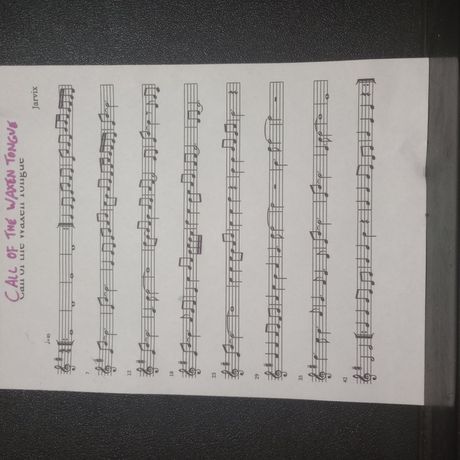 CALL OF THE WAXEN TONGUE
Call of the Waxen Tongue
Jarvix
7
12
18
23
29
35
42